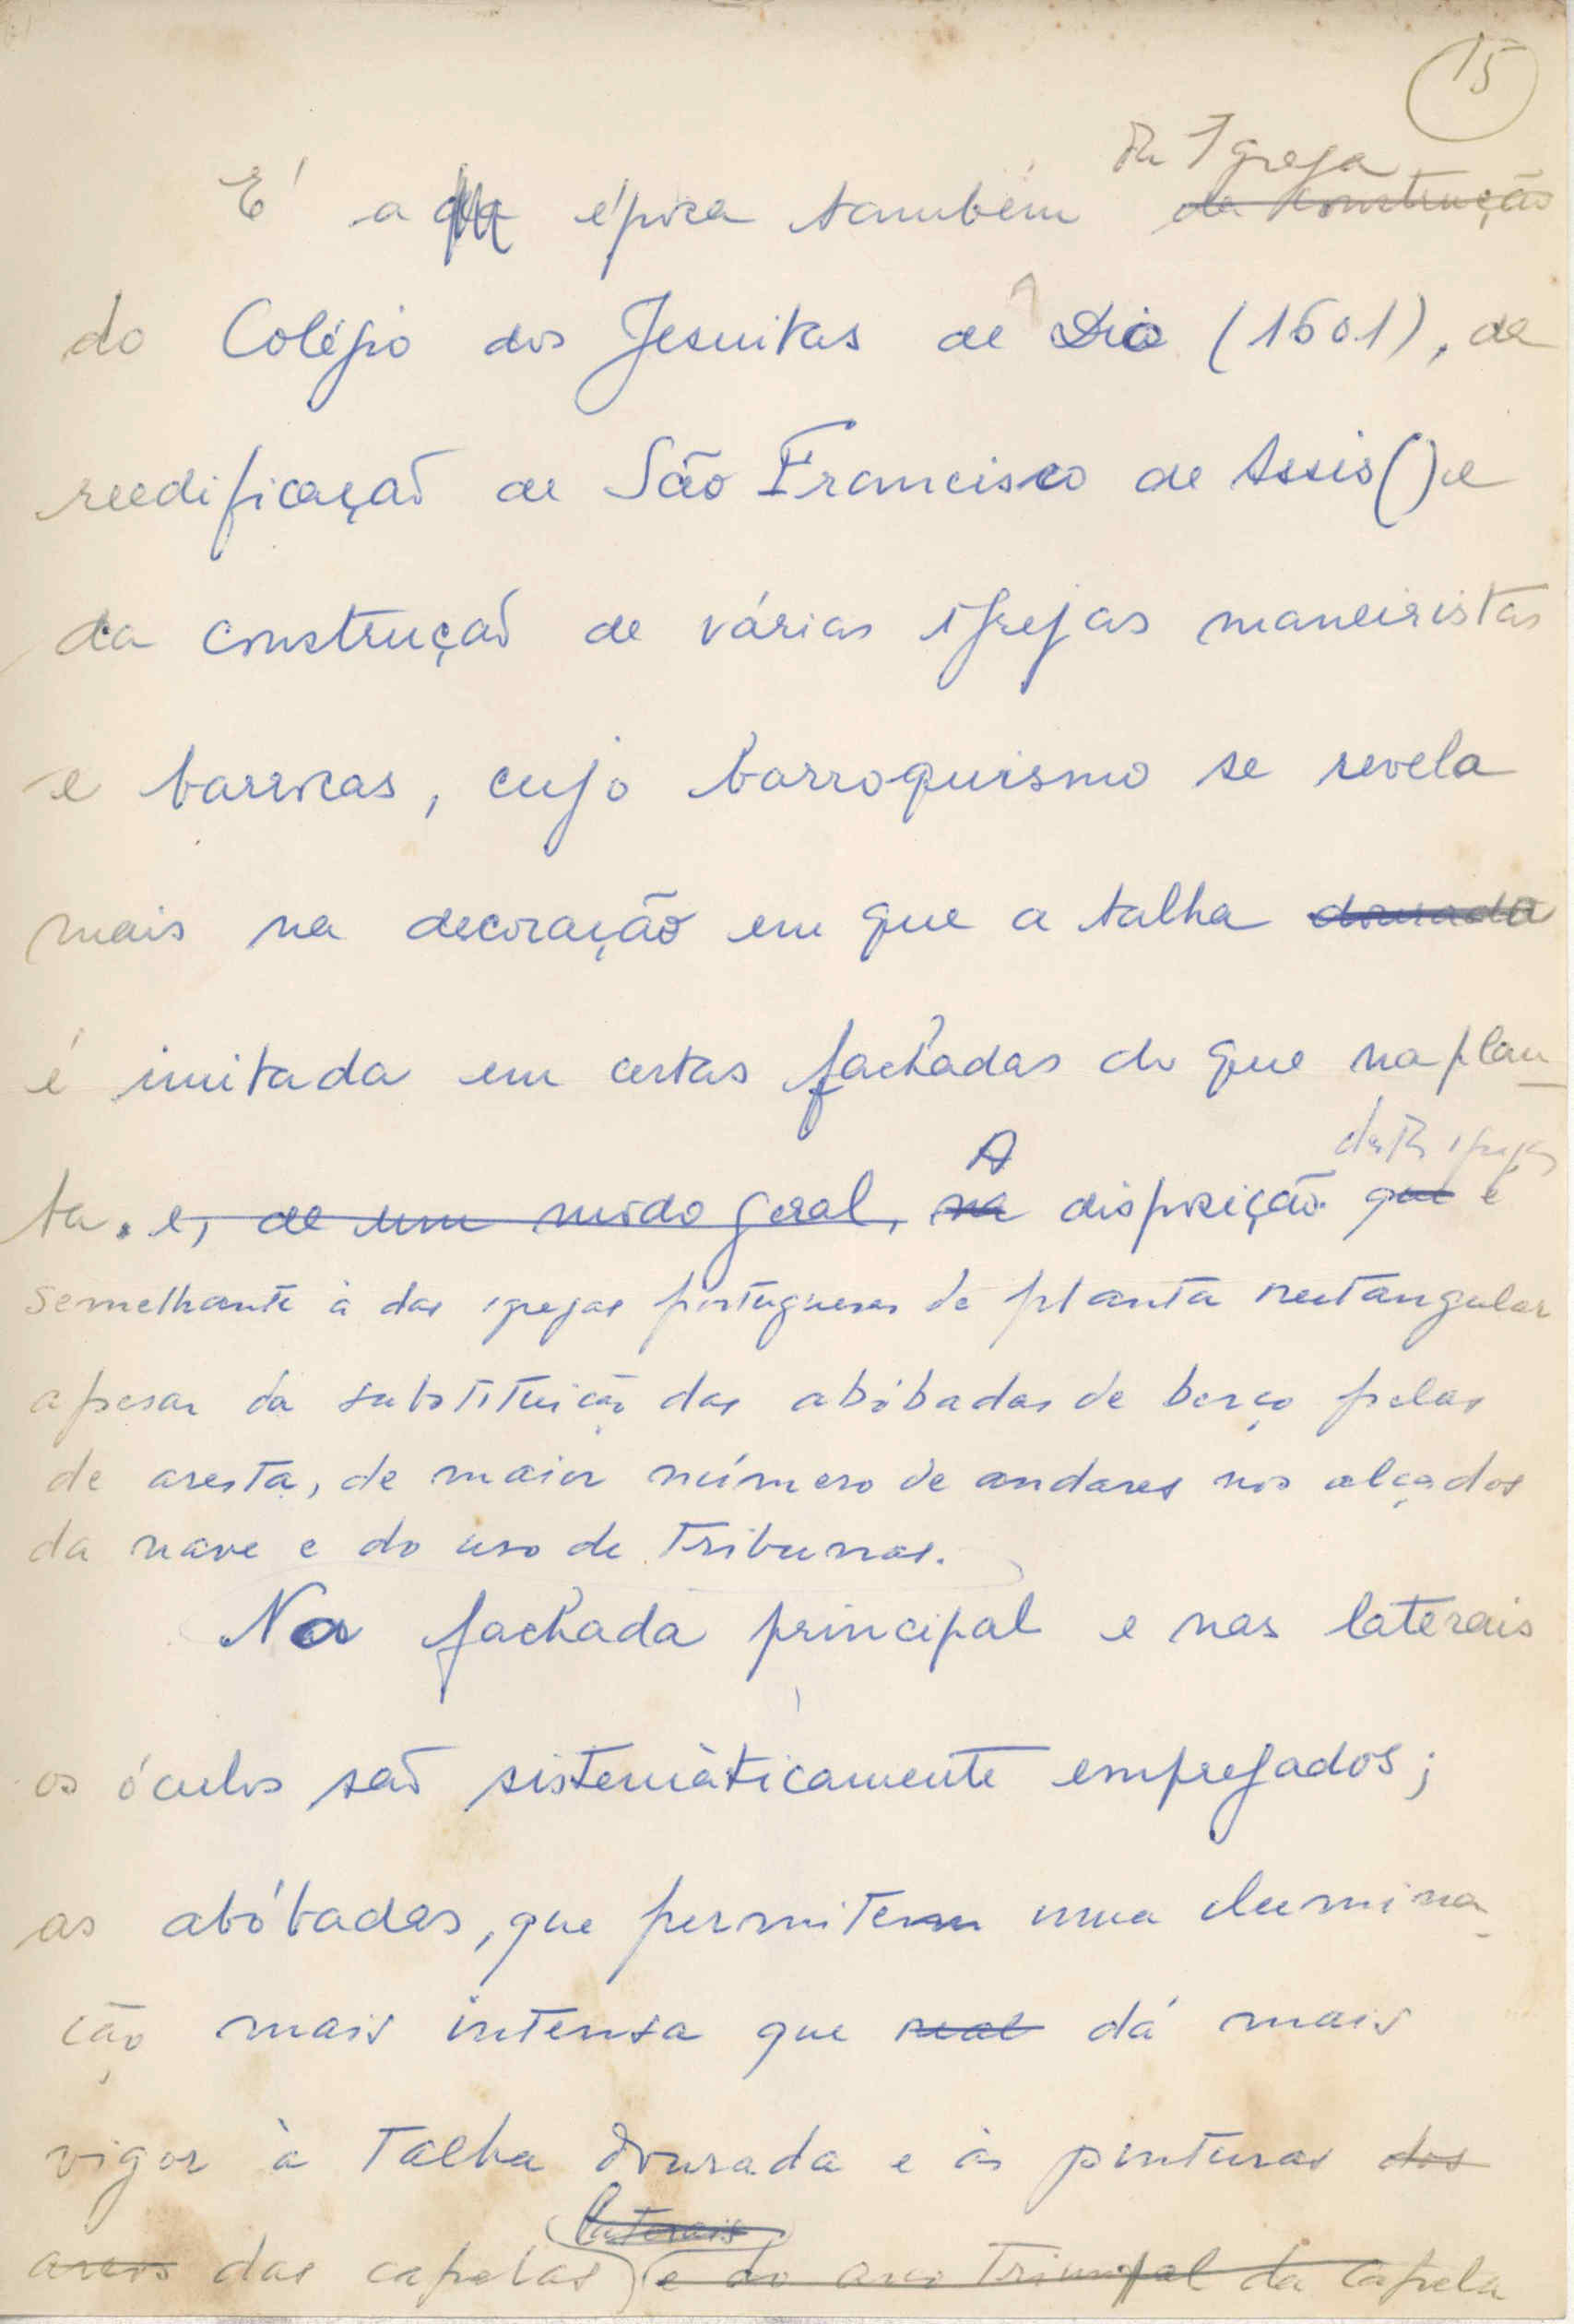 15
da Igreja
É a época também da construção
do Colégio dos Jesuitas de Dio (1601), de
reedificação de São Francisco de Assis ( ) e
da construção de várias igrejas maneiristas
e barrocas, cujo barroquismo se revela
mais na decoração em que a talha dourada
é imitada em certas fachadas do que na plan
desta igreja
A
ta. e, de um modo geral, na disposição que é
semelhante à das igrejas portuguesas de planta rectangular
apesar da substituição das abóbadas de berço pelas
de aresta, de maior número de andares nos alçados
da nave e do uso de Tribunas.
Na fachada principal e nas laterais
os óculos são sistemàticamente empregados;
as abóbadas, que permitem uma ilumina-
ção mais intensa que real dá mais
vigor à Talha dourada e às pinturas dos
laterais
arcos das capelas) (e do arco Triunfal da Capela